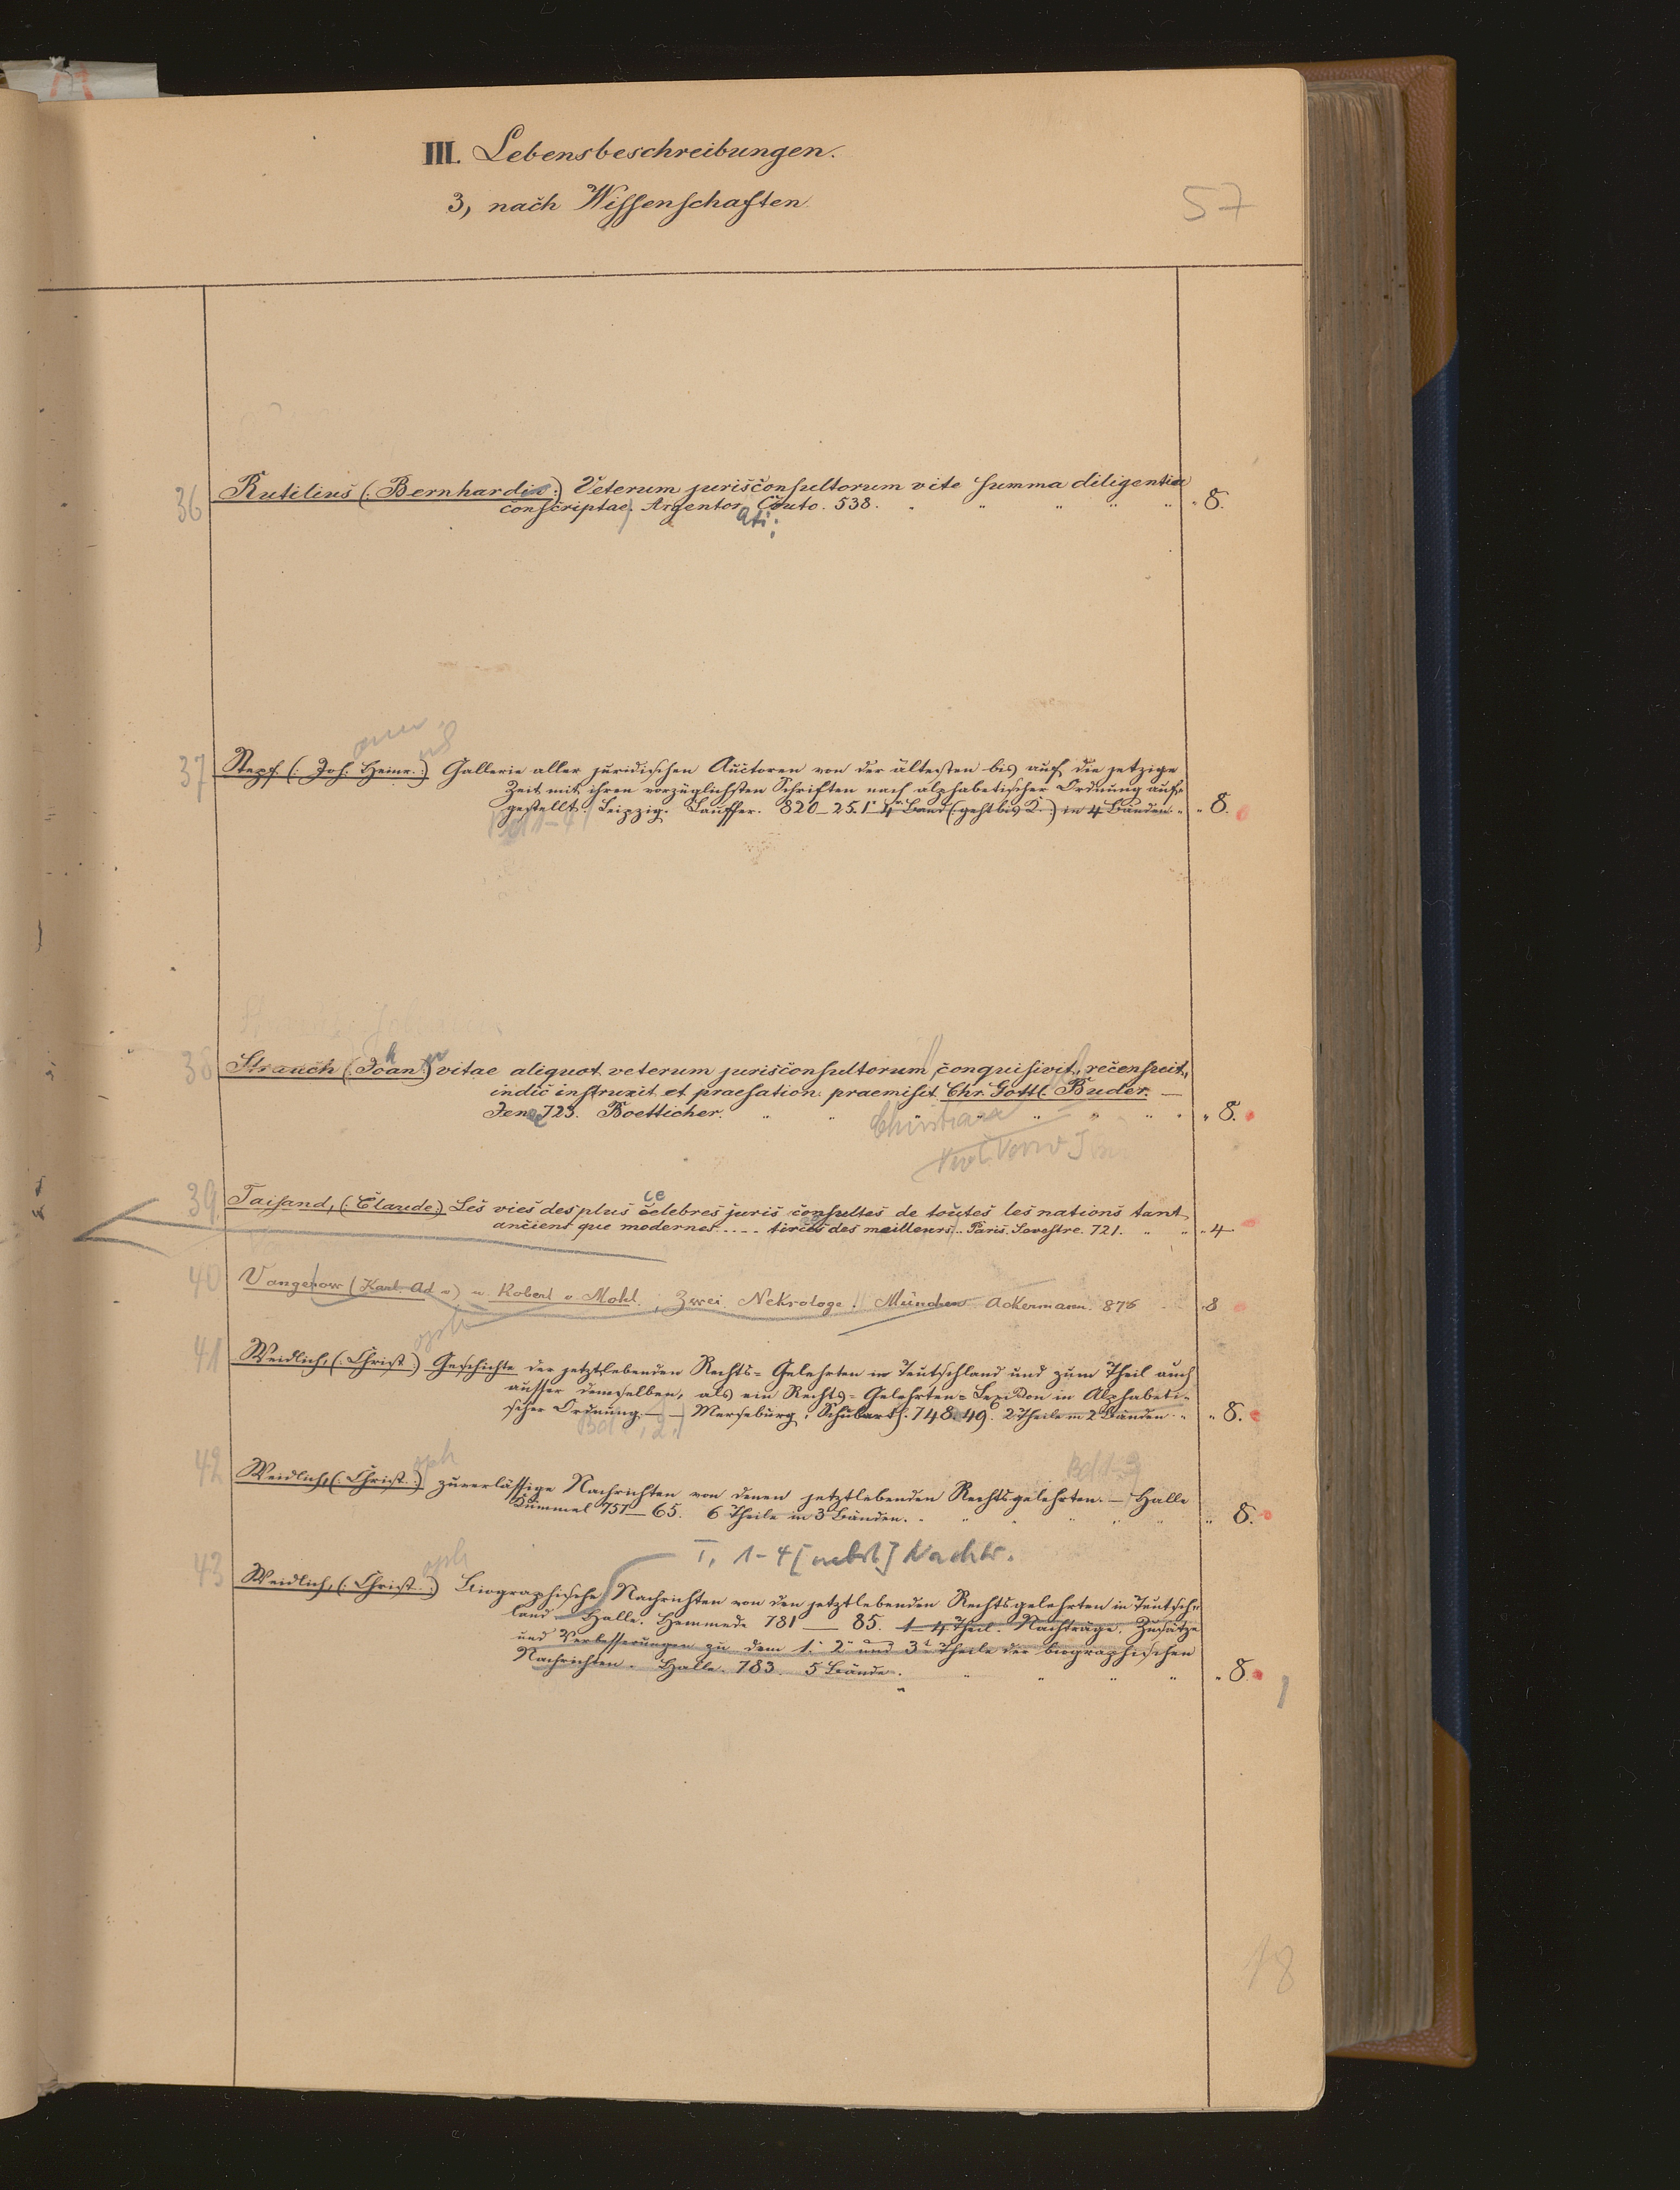 III. Lebensbeschreibungen.
3, nach Wissenschaften
57
36 Rutilius (: Bernhardin :) Veterum jurisconsultorum vite summa diligentia
conscriptae. Argentor. 538. " " " " 8.
ati:
ann
37 Stepf. (: Joh. Heinr. :) Gallerie aller juridischen Auctoren von der ältesten bis auf die jetzige
Zeit mit ihren vorzüglichsten Schriften nach alphabetischer Ordnung auf-
gestellt. Leipzig. Lauffer. 820–25. 1–4r Band (: geht bis Q. :) in 4 Bänden. " " 8.
Bd 1–4
38 Strauch (: Joan :) vitae aliquot veterum jurisconsultorum conquisivit, recensuit,
indic instruxit et praefation. praemisit Chr. Gottl. Buder. —
Jenae 723. Boetticher. " " " " " " 8.
Christian
39 Taisand, (: Claude :) Les vies des plus celebres juris consultes de toutes les nations tant
ce
ancient que modernes .... tirées des meilleurs .. Paris. Sevestre. 721. " " " 4
40 Vangerow (Karl. Ad v) u. Robert v. Mohl. Zwei Nekrologe. München Ackermann. 876 8
oph
41 Weidlich, (: Christ :) Geschichte der jetztlebenden Rechts-Gelehrten in Teutschland und zum Theil auch
ausser demselben, als ein Rechts-Gelehrten-Lexikon in Alphabeti-
scher Ordnung. — — Merseburg, Schubarth. 748.49. 2 Theile in 2 Bänden. " " 8.
Bd 1, 2.
oph
42 Weidlich, (: Christ. :) zuverlässige Nachrichten von denen jetztlebenden Rechtsgelehrten. — Halle
Bd 1-3
Kümmel 757–65. 6 Theile in 3 Bänden. " " " " " " 8.
T. 1-4 [nebst] Nachtr.
oph
43 Weidlich, (: Christ. :) Biographische Nachrichten von den jetztlebenden Rechtsgelehrten in Teutsch-
land Halle. Hemmede 781 — 85. 1–4 Theil. Nachträge, Zusätze
und Verbesserungen zu dem 1. 2 und 3t Theile der biographischen
Nachrichten. Halle. 783. 5 Bände. " " " " " 8.
18